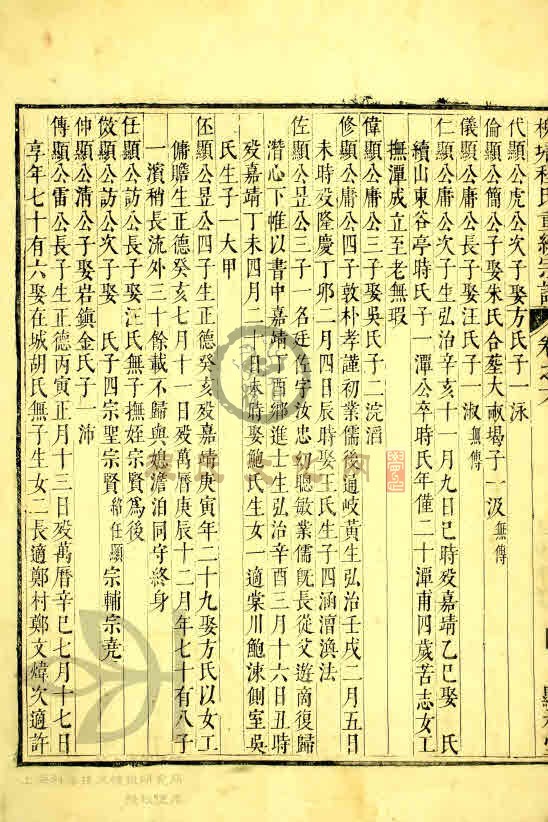 代顯公虎公次子娶方氏子一泳
倫顯公簡公子娶朱氏合塟大㘭塌子一汲無傳
儀顯公庸公長子娶汪氏子一淑無傳
仁顯公庸公次子生弘治辛亥十一月九日巳時殁嘉靖乙巳娶 氏
續山東谷亭時氏子一潭公卒時氏年僅二十潭甫四歲苦志女工
撫潭成立至老無瑕
偉顯公庸公三子娶吳氏子二淀滔
修顯公庸公四子敦朴孝謹初業儒後通岐黃生弘治壬戌二月五日
未時殁隆慶丁夘二月四日辰時娶王氏生子四涵澮渙法
佐顯公昱公三子一名廷佐字汝忠幼聰敏業儒旣長從父遊商復歸
潛心下帷以書中嘉靖丁酉鄉進士生弘治辛酉三月十六日丑時
殁嘉靖丁未四月二十日未時娶鮑氏生女一適棠川鮑涷側室吳
氏生子一大甲
伾顯公昱公四子生正德癸亥殁嘉靖庚寅年二十九娶方氏以女工
傭贍生正德癸亥七月十一日殁萬曆庚辰十二月年七十有八子
一濱稍長流外三十餘載不歸與媳澹泊同守終身
任顯公訪公長子娶汪氏無子撫姪宗賢爲後
傚顯公訪公次子娶 氏子四宗聖宗賢給任顯宗輔宗堯
伸顯公淸公子娶岩鎮金氏子一沛
傳顯公雷公長子生正德丙寅正月十三日殁萬曆辛巳七月十七日
享年七十有六娶在城胡氏無子生女二長適鄭村鄭文煒次適許